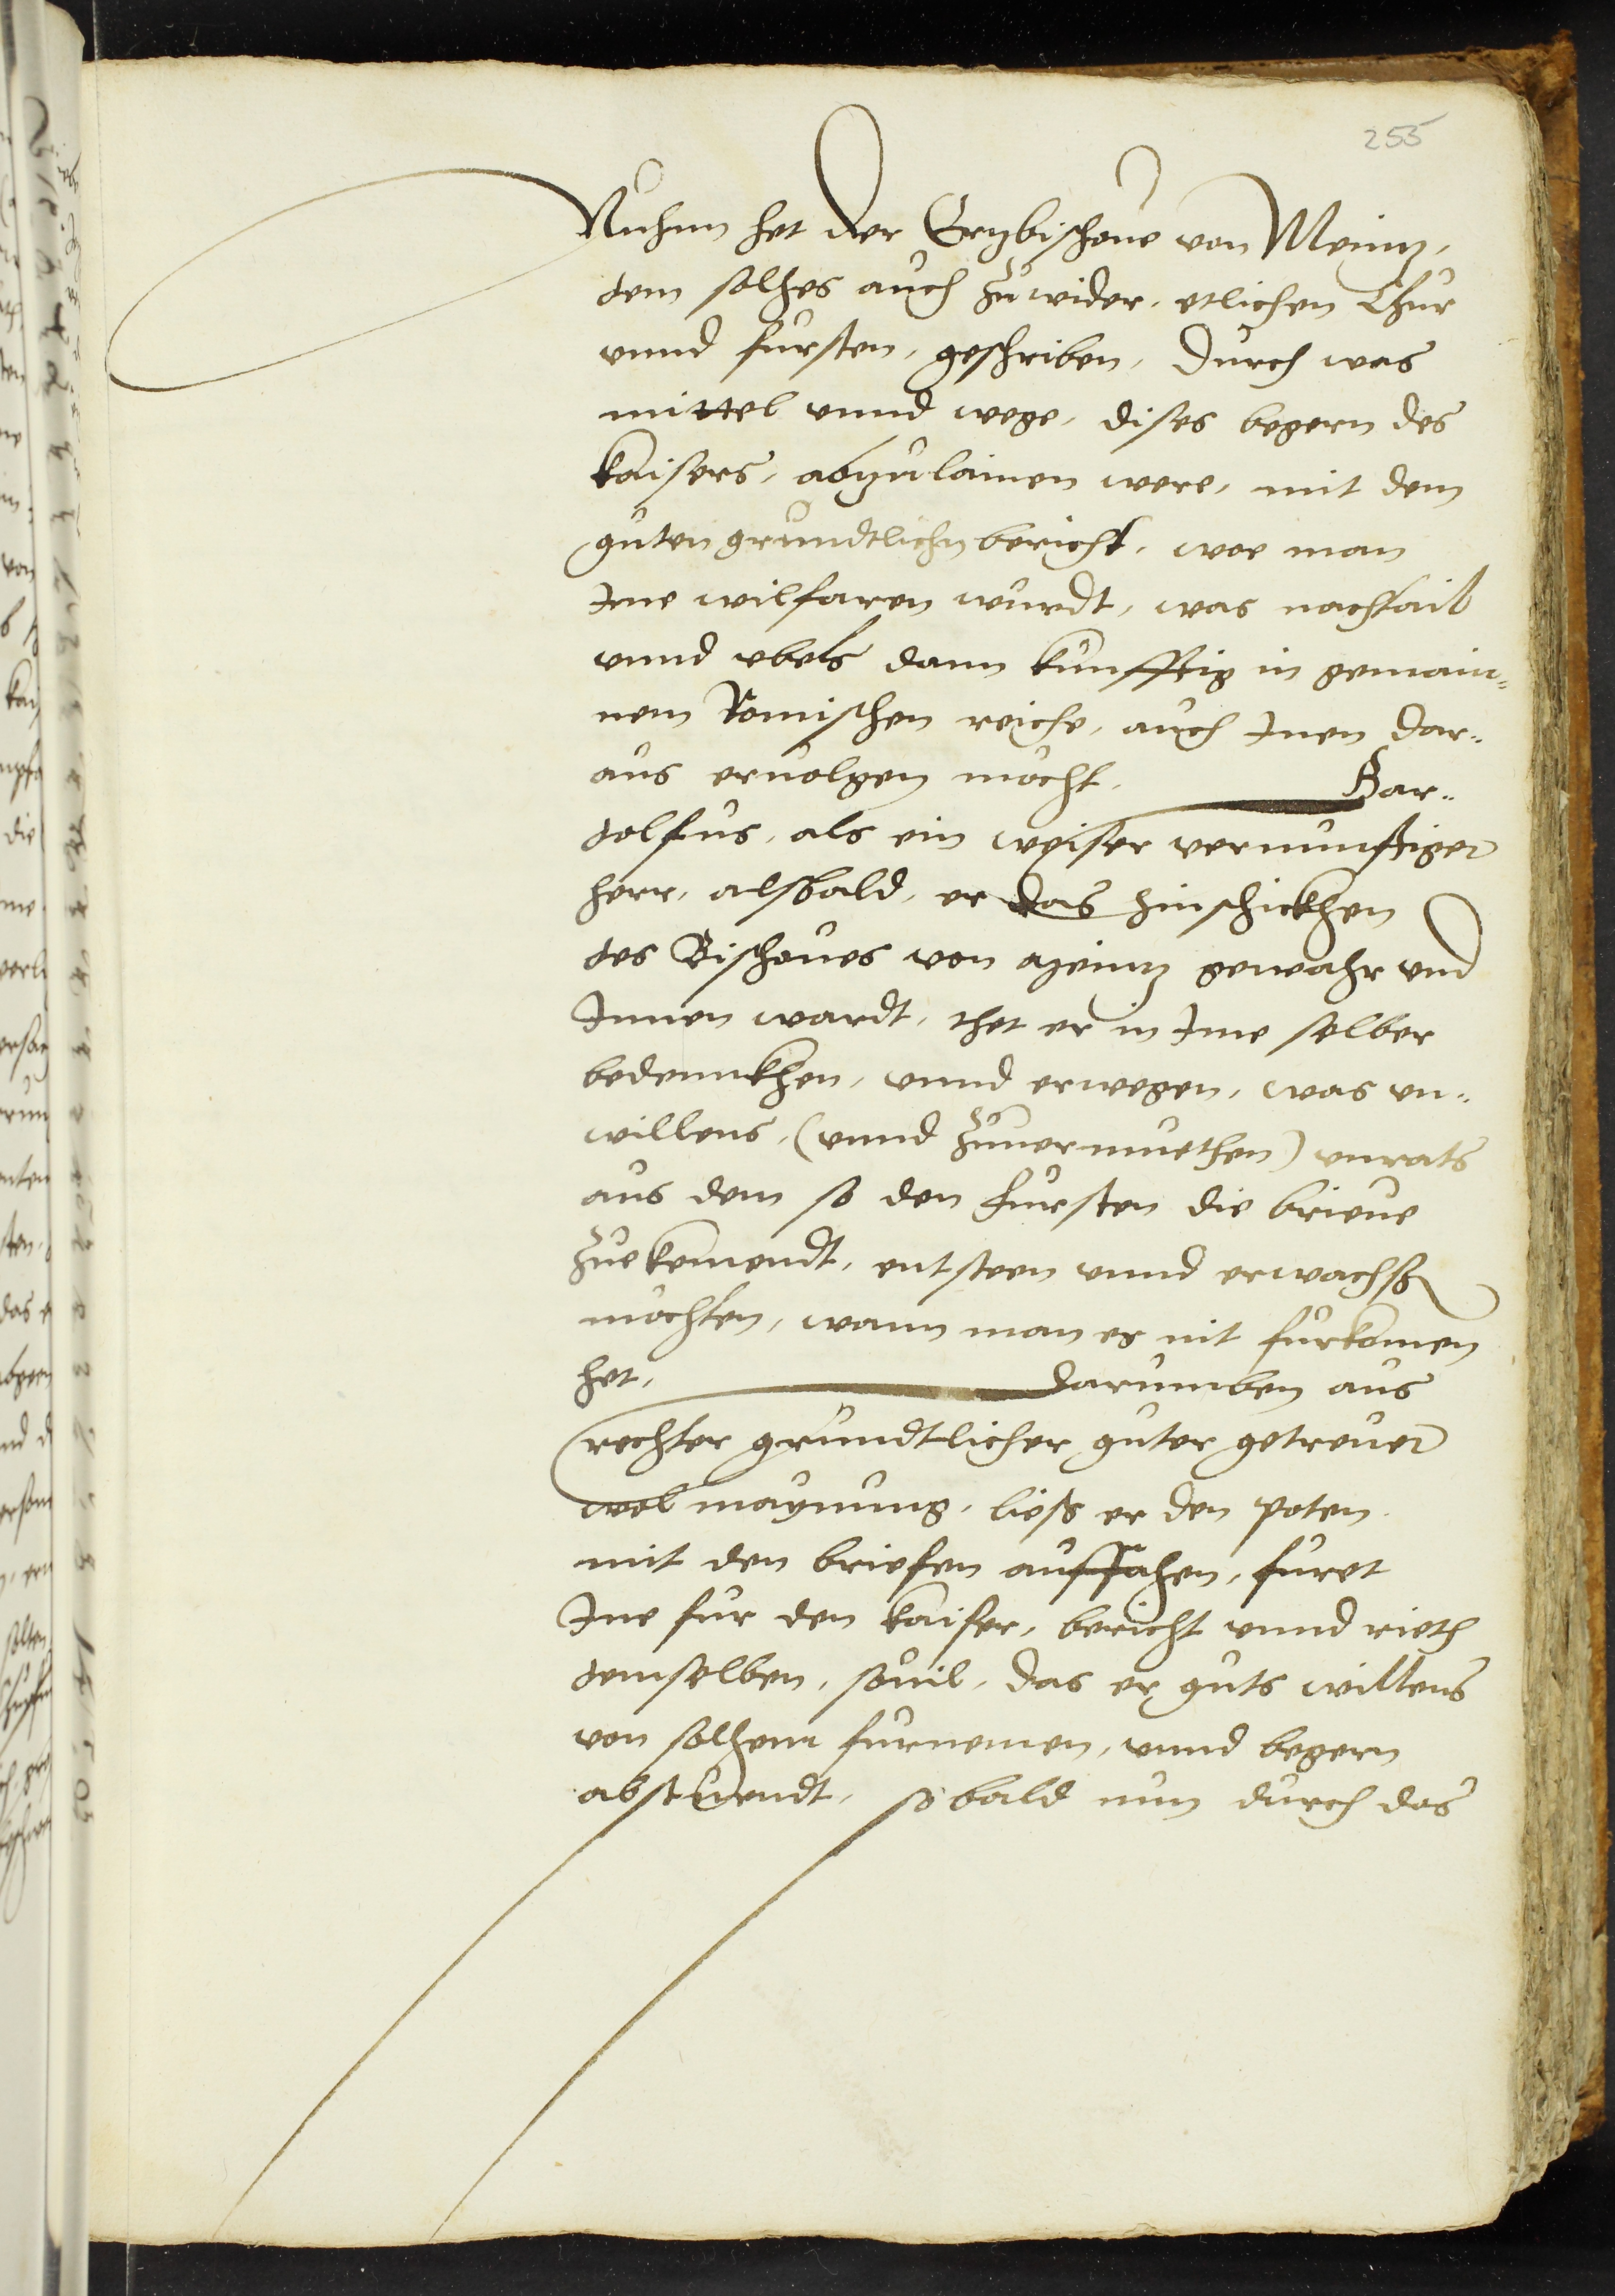 255
Nuhun het der Ertzbischoue von Meintz,
dem solhes auch zuwider, etlichen Chur
vnnd fursten, geschriben, durch was
mittel vnnd wege, dises begern des
kaisers, abzulainen were, mit dem
guten grundtlichn bericht, woe man
Ime wilfaren wurdt, was nachtail
vnnd vbels dann kunfftig in gemain=
nem Romischen reiche, auch Inen dar=
aus eruolgen möcht. Har=
dolfus, als ein weiser vernunfftiger
herr, alsbald, er das hinschickhen
des Bischoues von Meintz gewahr vnd
Innen wardt, thet er in Ime selber
bedennkhen, vnnd erwegen, was vn=
willens, (vnnd zuuermuethen) vnrats
aus dem so den fursten die brieue
zuekomendt, entsteen vnnd erwachsn
möchten, wann man es nit furkomen
het, darumben aus
rechter grundtlicher guter getreuer
wol maynung, liess er den poten
mit den briefen auffahen, furet
Ine fur den kaiser, bericht vnnd rieth
demselben, souil, das er guts willens
von solhem furnemen, vnnd begern
abstuendt, so bald nun durch das